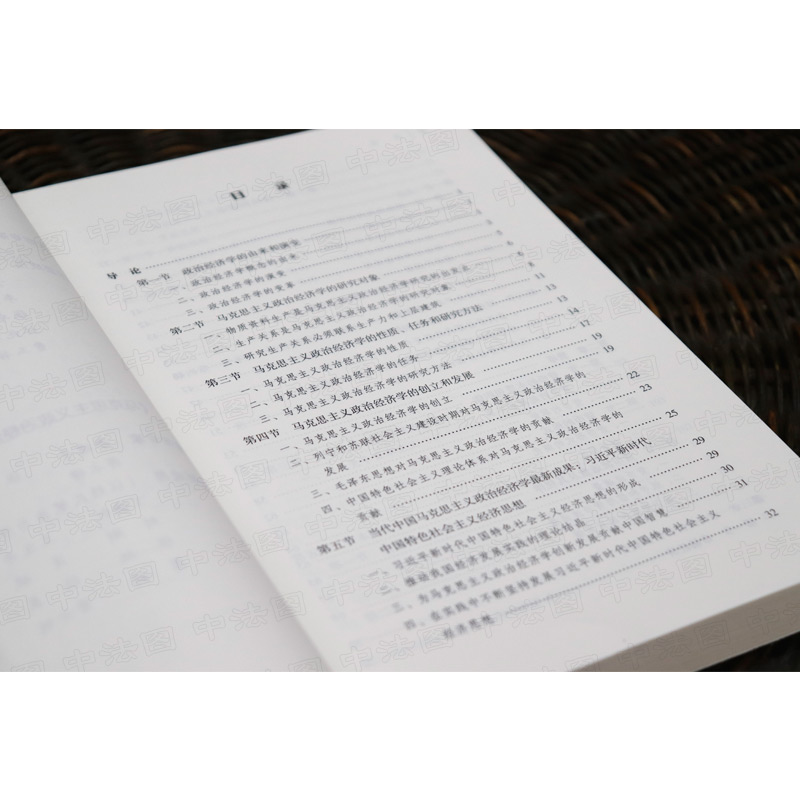 目 录
导 论 1
第一节 政治经济学的由来和演变
一、政治经济学概念的由来
二、政治经济学的演变
三、政治经济学的变革
第二节 马克思主义政治经济学的研究对象
一、物质资料生产是马克思主义政治经济学研究的出发点
二、生产关系是马克思主义政治经济学的研究对象
三、研究生产关系必须联系生产力和上层建筑 11
第三节 马克思主义政治经济学的性质、任务和研究方法 13
一、马克思主义政治经济学的性质 13
二、马克思主义政治经济学的任务 14
三、马克思主义政治经济学的研究方法 17
第四节 马克思主义政治经济学的创立和发展 19
一、马克思主义政治经济学的创立 19
二、列宁和苏联社会主义建设时期对马克思主义政治经济学的
发展 22
三、毛泽东思想对马克思主义政治经济学的贡献 23
四、中国特色社会主义理论体系对马克思主义政治经济学的
贡献 25
第五节 当代中国马克思主义政治经济学最新成果：习近平新时代
中国特色社会主义经济思想 29
一、习近平新时代中国特色社会主义经济思想的形成 29
二、推动我国经济发展实践的理论结晶 30
三、为马克思主义政治经济学创新发展贡献中国智慧 31
四、在实践中不断坚持发展习近平新时代中国特色社会主义
经济思想 32
中法图